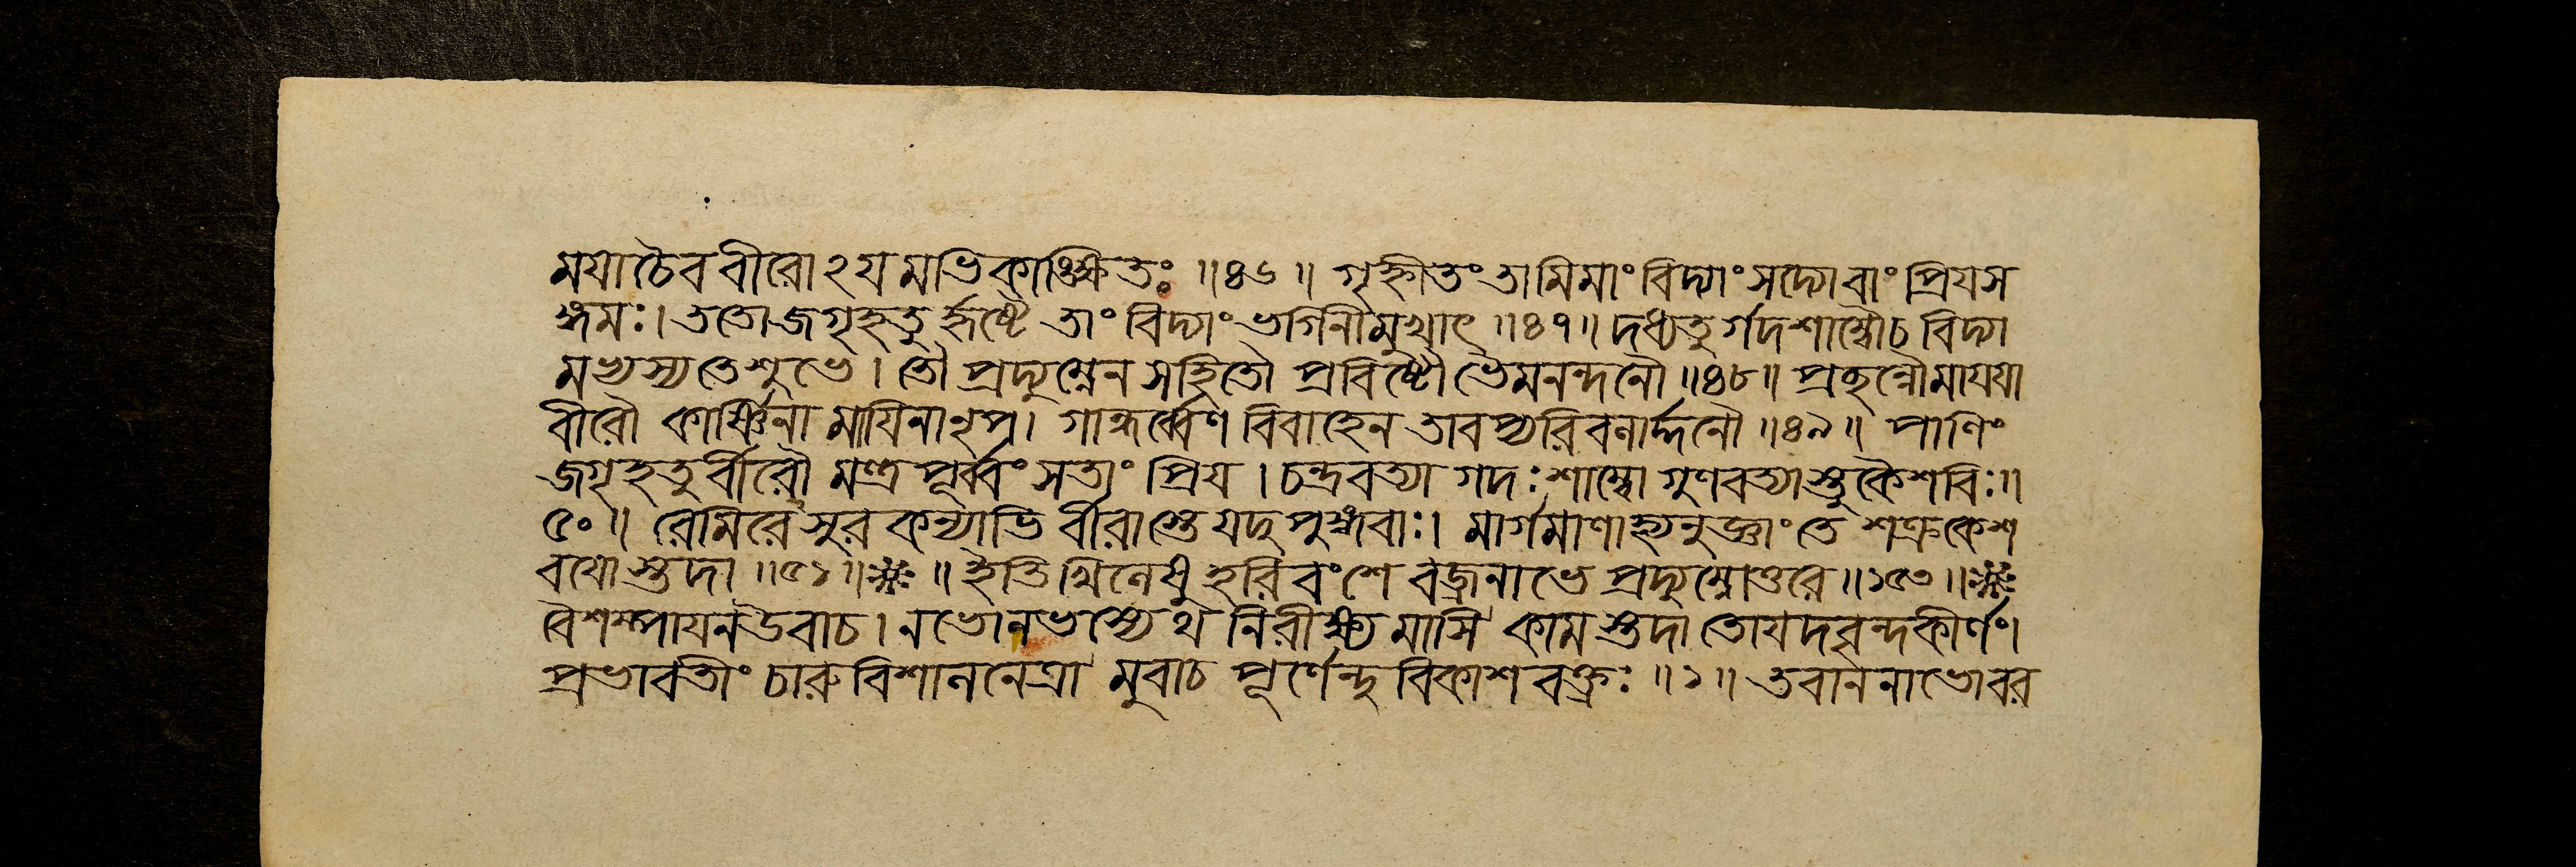 মযা চৈব বীরোঽয মভিকাঙ্ক্ষিতঃ ॥৪৬॥ গৃহ্নীতং তামিমাং বিদ্যাং সদ্যোবাং প্রিযস
ঙ্গমঃ। ততো জগৃহতু র্হৃষ্টৈ তাং বিদ্যাং ভগিনীমুখাৎ ॥৪৭॥ দধ্যতু র্গদশাম্বৌচ বিদ্যা
মভ্যস্যতেশুভে। তৌ প্রদ্যুম্নেন সহিতৌ প্রবিষ্টৌ ভৈমনন্দনৌ ॥৪৮॥ প্রছন্নৌমাযযা
বীরৌ কার্ষ্ণিনা মাযিনানৃপ। গান্ধর্ব্বেণ বিবাহেন তাবপ্যরিবলার্দ্দনৌ ॥৪৯॥ পাণিং
জগৃহতু র্বীরৌ মন্ত্র পূর্ব্বং সতাং প্রিয। চন্দ্রবত্যা গদঃ শাম্বো গুণবত্যাস্তু কৈশবিঃ॥
৫০॥ রেমিরে সুর কন্যাভি র্বীরাস্তে যদুপুঙ্গবাঃ। মার্গমাণাহ্যনুজ্ঞাং তে শক্রকেশ
বযো স্তদা ॥৫১॥ ॥ ইতি খিলেষু হরিবংশে বজ্রনাভে প্রদ্যুম্নোত্তরে ॥১৫৩॥
বৈশম্পাযন উবাচ। নভোনভস্যেথ নিরীক্ষ্য মাসি কাম স্তদা তোযদবৃন্দকীর্ণং।
প্রভাবতীং চারু বিশালনেত্রা মুবাচ পূর্ণেন্দু বিকাশ বক্ত্রঃ ॥১॥ তবাননাভো বর